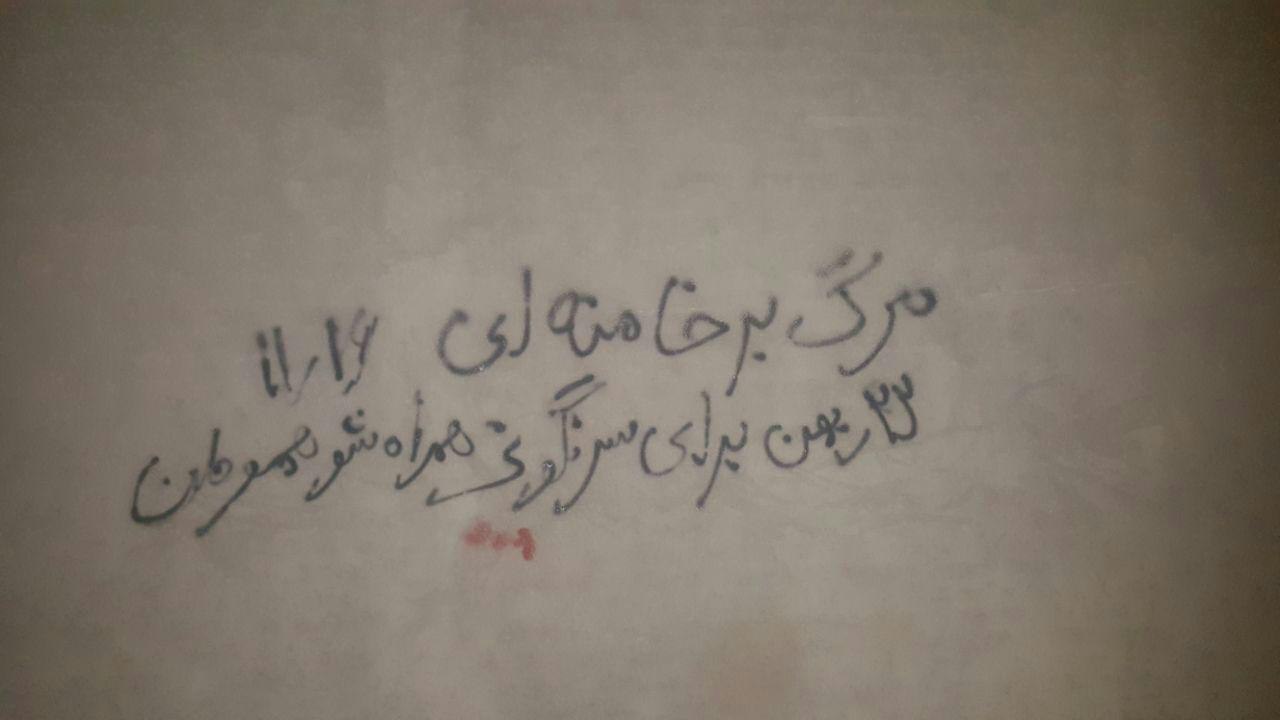 مرگ بر خامنه ای ۱۱/۱۶
۲۲ بهمن برای سرنگونی همراه شو هموطن